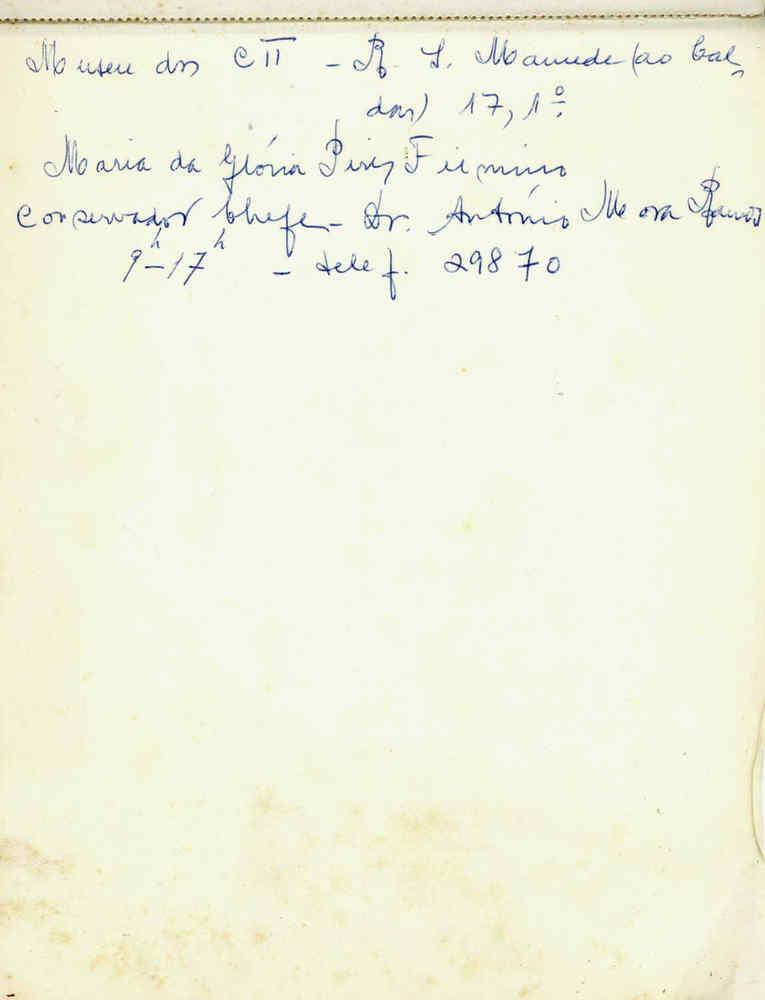 Museu dos CTT - R. S. Mamede (ao Cal-
das) 17, 1º.
Maria da Glória Pires Firmino
Conservador Chefe - Dr. António Mora Ramos
9h-17h - telef. 29870